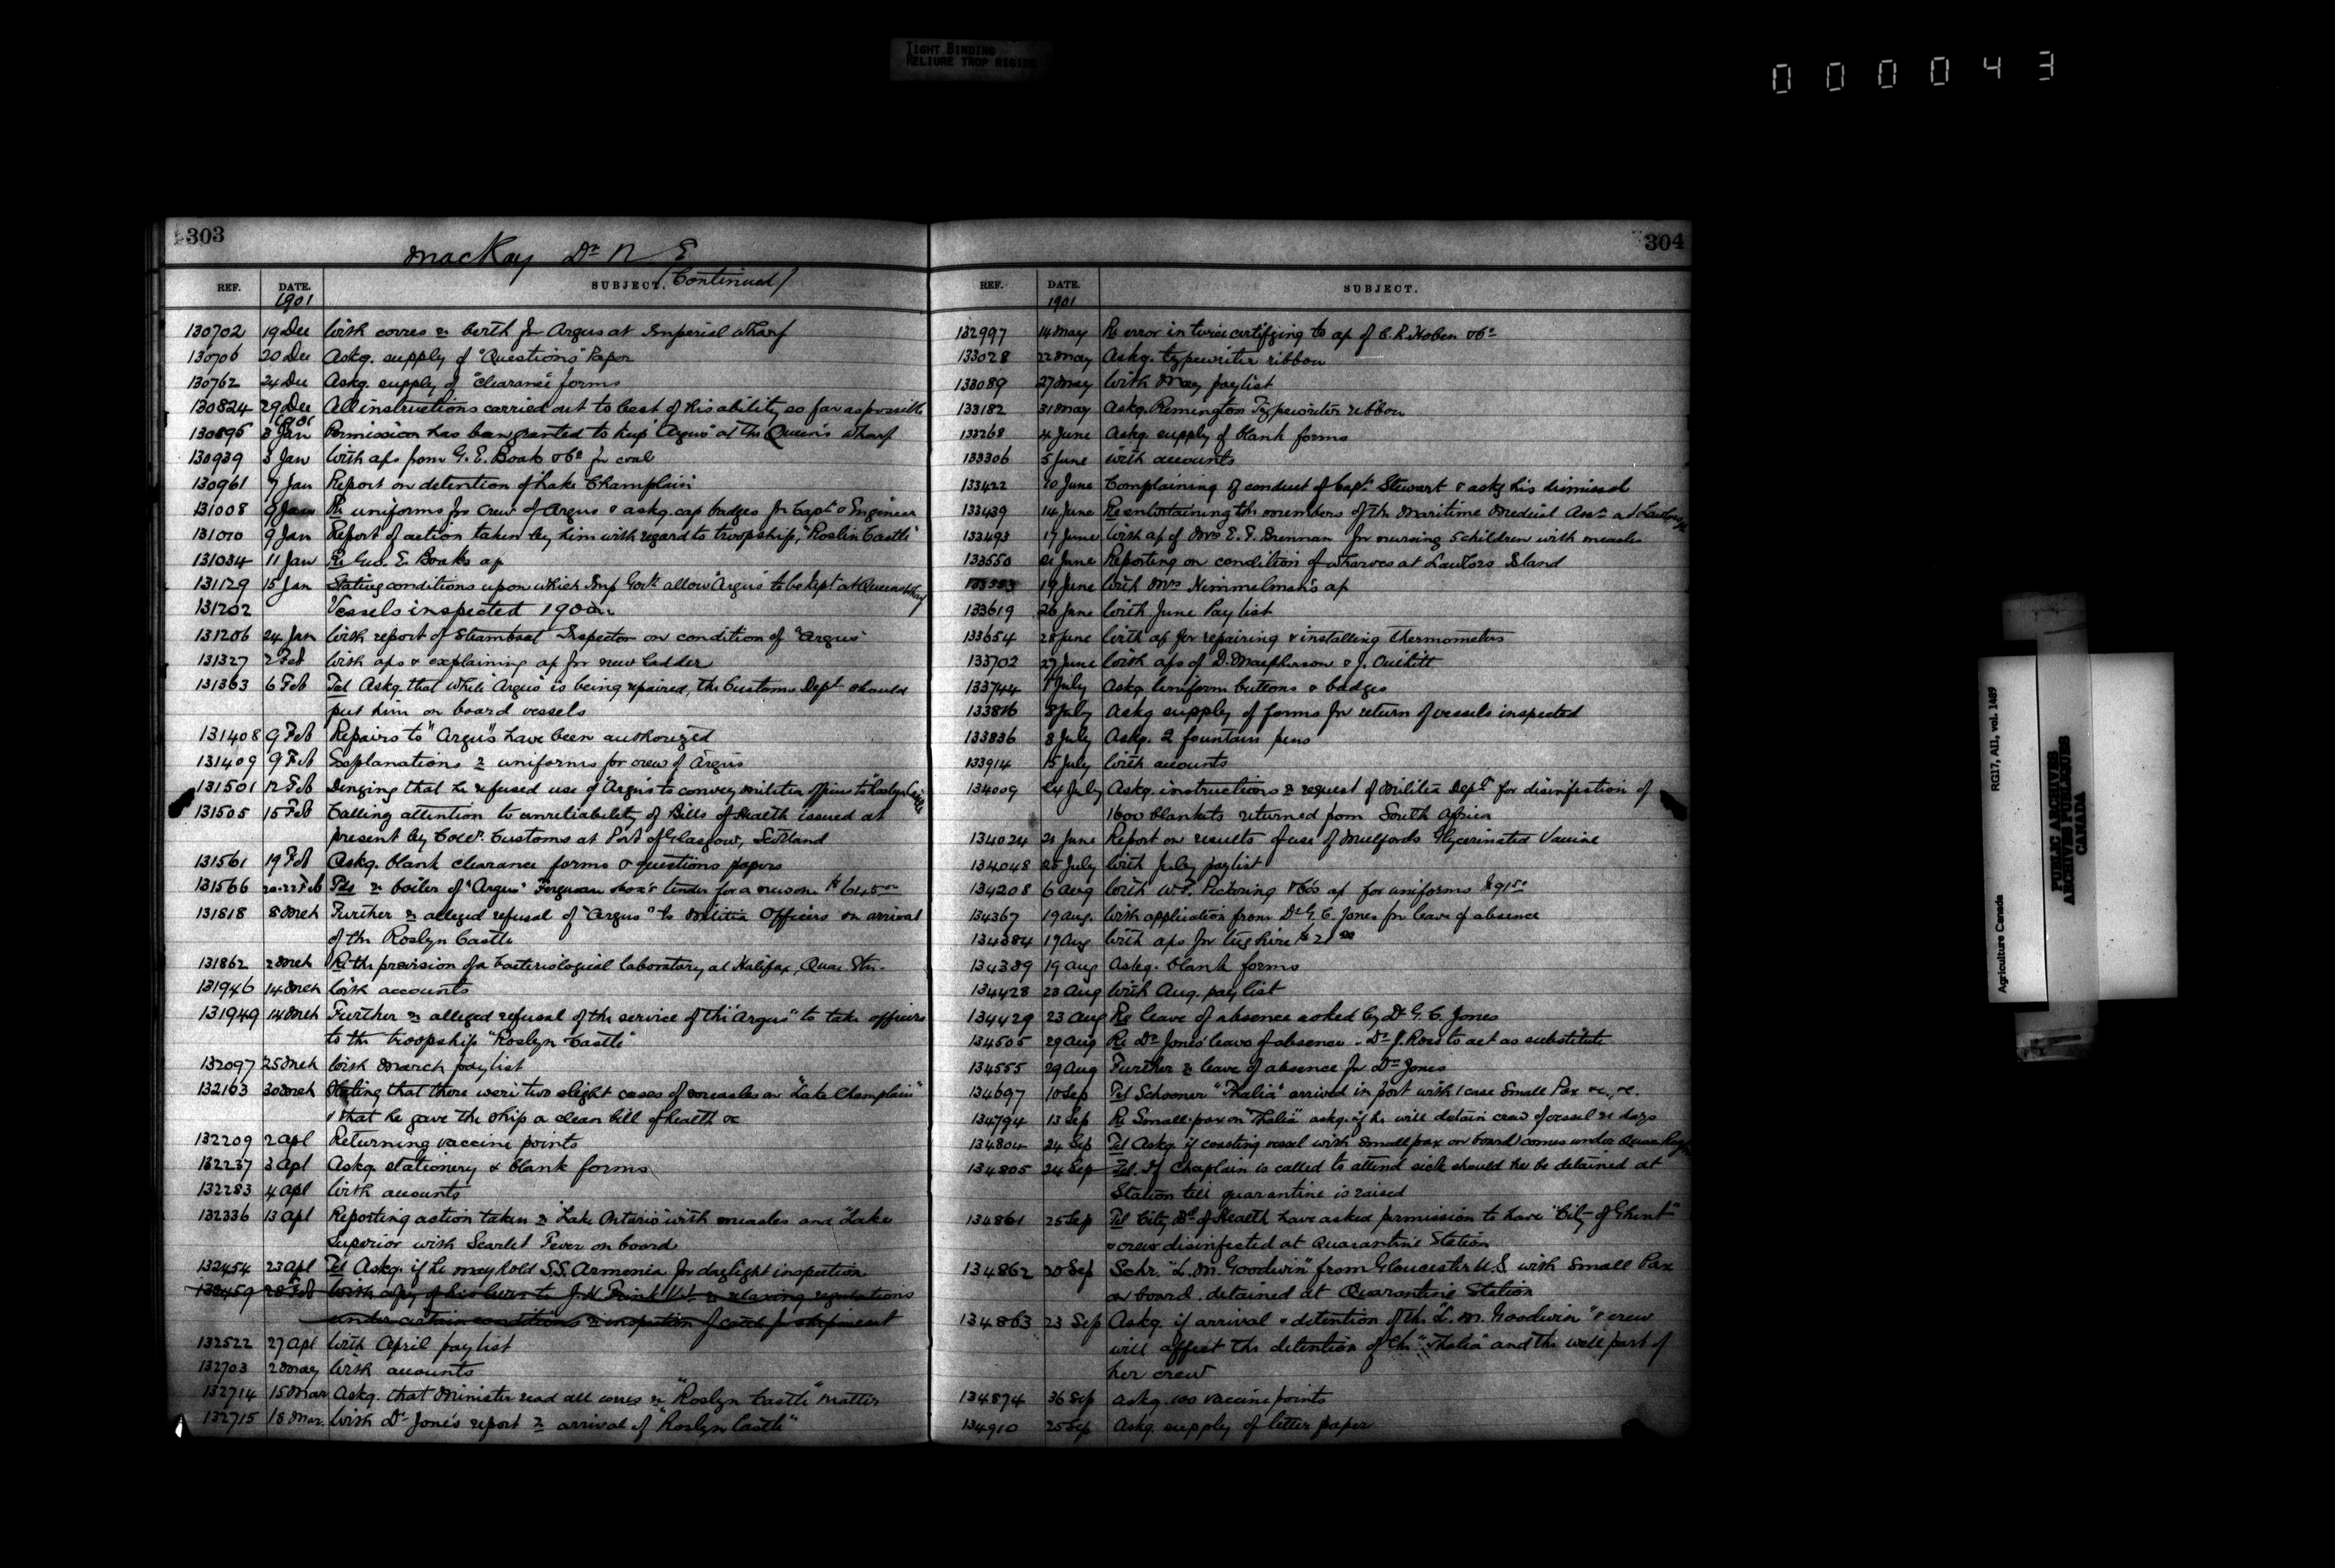 TIGHT BINDING
RELIURE TROP RIGIDE
000043
303
MacKay Dr N E
(Continued)
REF. DATE. SUBJECT.
1901
130702 19 Dec With corres re berth for Argus at Imperial Wharf
130706 20 Dec Askg. supply of "Questions" Paper
130762 24 Dec Askg. supply of "clearance" forms
130824 29 Dec All instructions carried out to best of his ability so far as possible
1901
130895 3 Jan Permission has been granted to keep "Argus" at the Queen's Wharf
130939 3 Jan With aps from G. E. Boak & Co for coal
130961 7 Jan Report on detention of Lake Champlain
131008 9 Jan Re uniforms for crew of Argus & askg. cap badges for Capt & Engineer
131010 9 Jan Report of action taken by him with regard to troopship, "Roslin Castle"
131034 11 Jan Re Geo. E. Boak's ap
131129 15 Jan Stating conditions upon which Imp Govt. allow "Argus" to be kept at Queens Wharf
131202 Vessels inspected 1900
131206 24 Jan With report of Steamboat Inspector on condition of "Argus"
131327 2 Feb With aps & explaining ap for new ladder
131363 6 Feb Tel Askg. that while "Argus" is being repaired, the Customs Dept should
put him on board vessels
131408 9 Feb Repairs to "Argus" have been authorized
131409 9 Feb Explanations re uniforms for crew of Argus
131501 12 Feb Denying that he refused use of "Argus" to convey militia officers to "Roslyn Castle
131505 15 Feb Calling attention to unreliability of Bills of Health issued at
present by Collr. Customs at Port of Glasgow, Scotland
131561 19 Feb Askg. blank clearance forms & questions papers
131566 20-22 Feb Tels re boiler of "Argus" Ferguson tender for a new one
131818 8 Mch Further re alleged refusal of "Argus" to Militia Officers on arrival
of the Roslyn Castle
131862 2 Mch Re the provision of a bacteriological laboratory at Halifax, Quar. Stn.
131946 14 Mch With accounts
131949 14 Mch Further re alleged refusal of the service of the "Argus" to take officers
to the troopship "Roslyn Castle"
132097 25 Mch With March pay list
132163 30 Mch Stating that there were two slight cases of measles on "Lake Champlain"
& that he gave the ship a clean bill of health &c
132209 2 Apl Returning vaccine points
132237 3 Apl Askg. stationery & blank forms
132283 4 Apl With accounts
132336 13 Apl Reporting action taken re "Lake Ontario" with measles and "Lake
Superior with Scarlet Fever on board
132454 23 Apl Tel Askg. if he may hold S.S. Armenia for daylight inspection
132459 28 Feb With copy of his to J. H. re relaxing regulations
under certain conditions re inspection of cattle for shipment
132522 27 Apl With April pay list
132703 2 May With accounts
132714 15 Mar Askg. that Minister read all corres re "Roslyn Castle" matter
132715 18 Mar. With Dr Jones's report re arrival of "Roslyn Castle"
304
REF. DATE. SUBJECT.
1901
132997 14 May Re error in twice certifying to ap of C. R. Hoben & Co
133028 22 May Askg. typewriter ribbon
133089 27 May With May pay list
133182 31 May Askg. Remington Typewriter ribbon
133268 4 June Askg. supply of blank forms
133306 5 June With accounts
133422 10 June Complaining of conduct of Capt. Stewart & askg his dismissal
133439 14 June Re entertaining the members of the Maritime Medical Assn at Lawlors Isl
133493 17 June With ap of Mrs E. F. Brennan for nursing 5 children with measles
133550 21 June Reporting on condition of wharves at Lawlors Island
19 June With Mrs Himmelman's ap
133619 26 June With June Pay list
133654 28 June With ap for repairing & installing Thermometers
133702 27 June With aps of D. Macpherson & J.
133744 1 July Askg uniform buttons & badges
133816 8 July Askg supply of forms for return of vessels inspected
133836 8 July Askg. 2 fountain pens
133914 15 July With accounts
134009 24 July Askg. instructions re request of Militia Dept for disinfection of
1600 blankets returned from South Africa
134024 21 June Report on results of use of Mulfords Glycerinated Vaccine
134048 25 July With July pay list
134208 6 Aug With W. Pickering & Co's ap for uniforms $91.50
134367 19 Aug. With application from Dr G. C. Jones for leave of absence
134384 19 Aug With aps for tug hire
134389 19 Aug Askg. blank forms
134428 23 Aug With Aug. pay list
134429 23 Aug Re leave of absence asked by Dr G. C. Jones
134505 29 Aug Re Dr Jones leave of absence - Dr J. Ross to act as substitute
134555 29 Aug Further re leave of absence for Dr Jones
134697 10 Sep Tel Schooner "Thalia" arrived in port with 1 case Small Pox &c., &c.
134794 13 Sep Re Small-pox on "Thalia" askg. if he will detain crew of vessel 21 days
134804 24 Sep Tel Askg. if coasting vessel with small pox on board comes under Quar. Regs
134805 24 Sep Tel. If Chaplain is called to attend sick should he be detained at
Station till quarantine is raised
134861 25 Sep Tel City Bd of Health have asked permission to have "City of Ghent"
& crew disinfected at Quarantine Station
134862 20 Sep Schr. "L. M. Goodwin" from Gloucester U.S. with Small Pox
on board. detained at Quarantine Station
134863 23 Sep Askg. if arrival & detention of the "L. M. Goodwin" & crew
will affect the detention of the "Thalia" and the well part of
her crew
134874 26 Sep askg. 100 vaccine points
134910 25 Sep Askg. supply of letter paper
Agriculture Canada RG17, AII, vol. 1489
PUBLIC ARCHIVES
ARCHIVES PUBLIQUES
CANADA